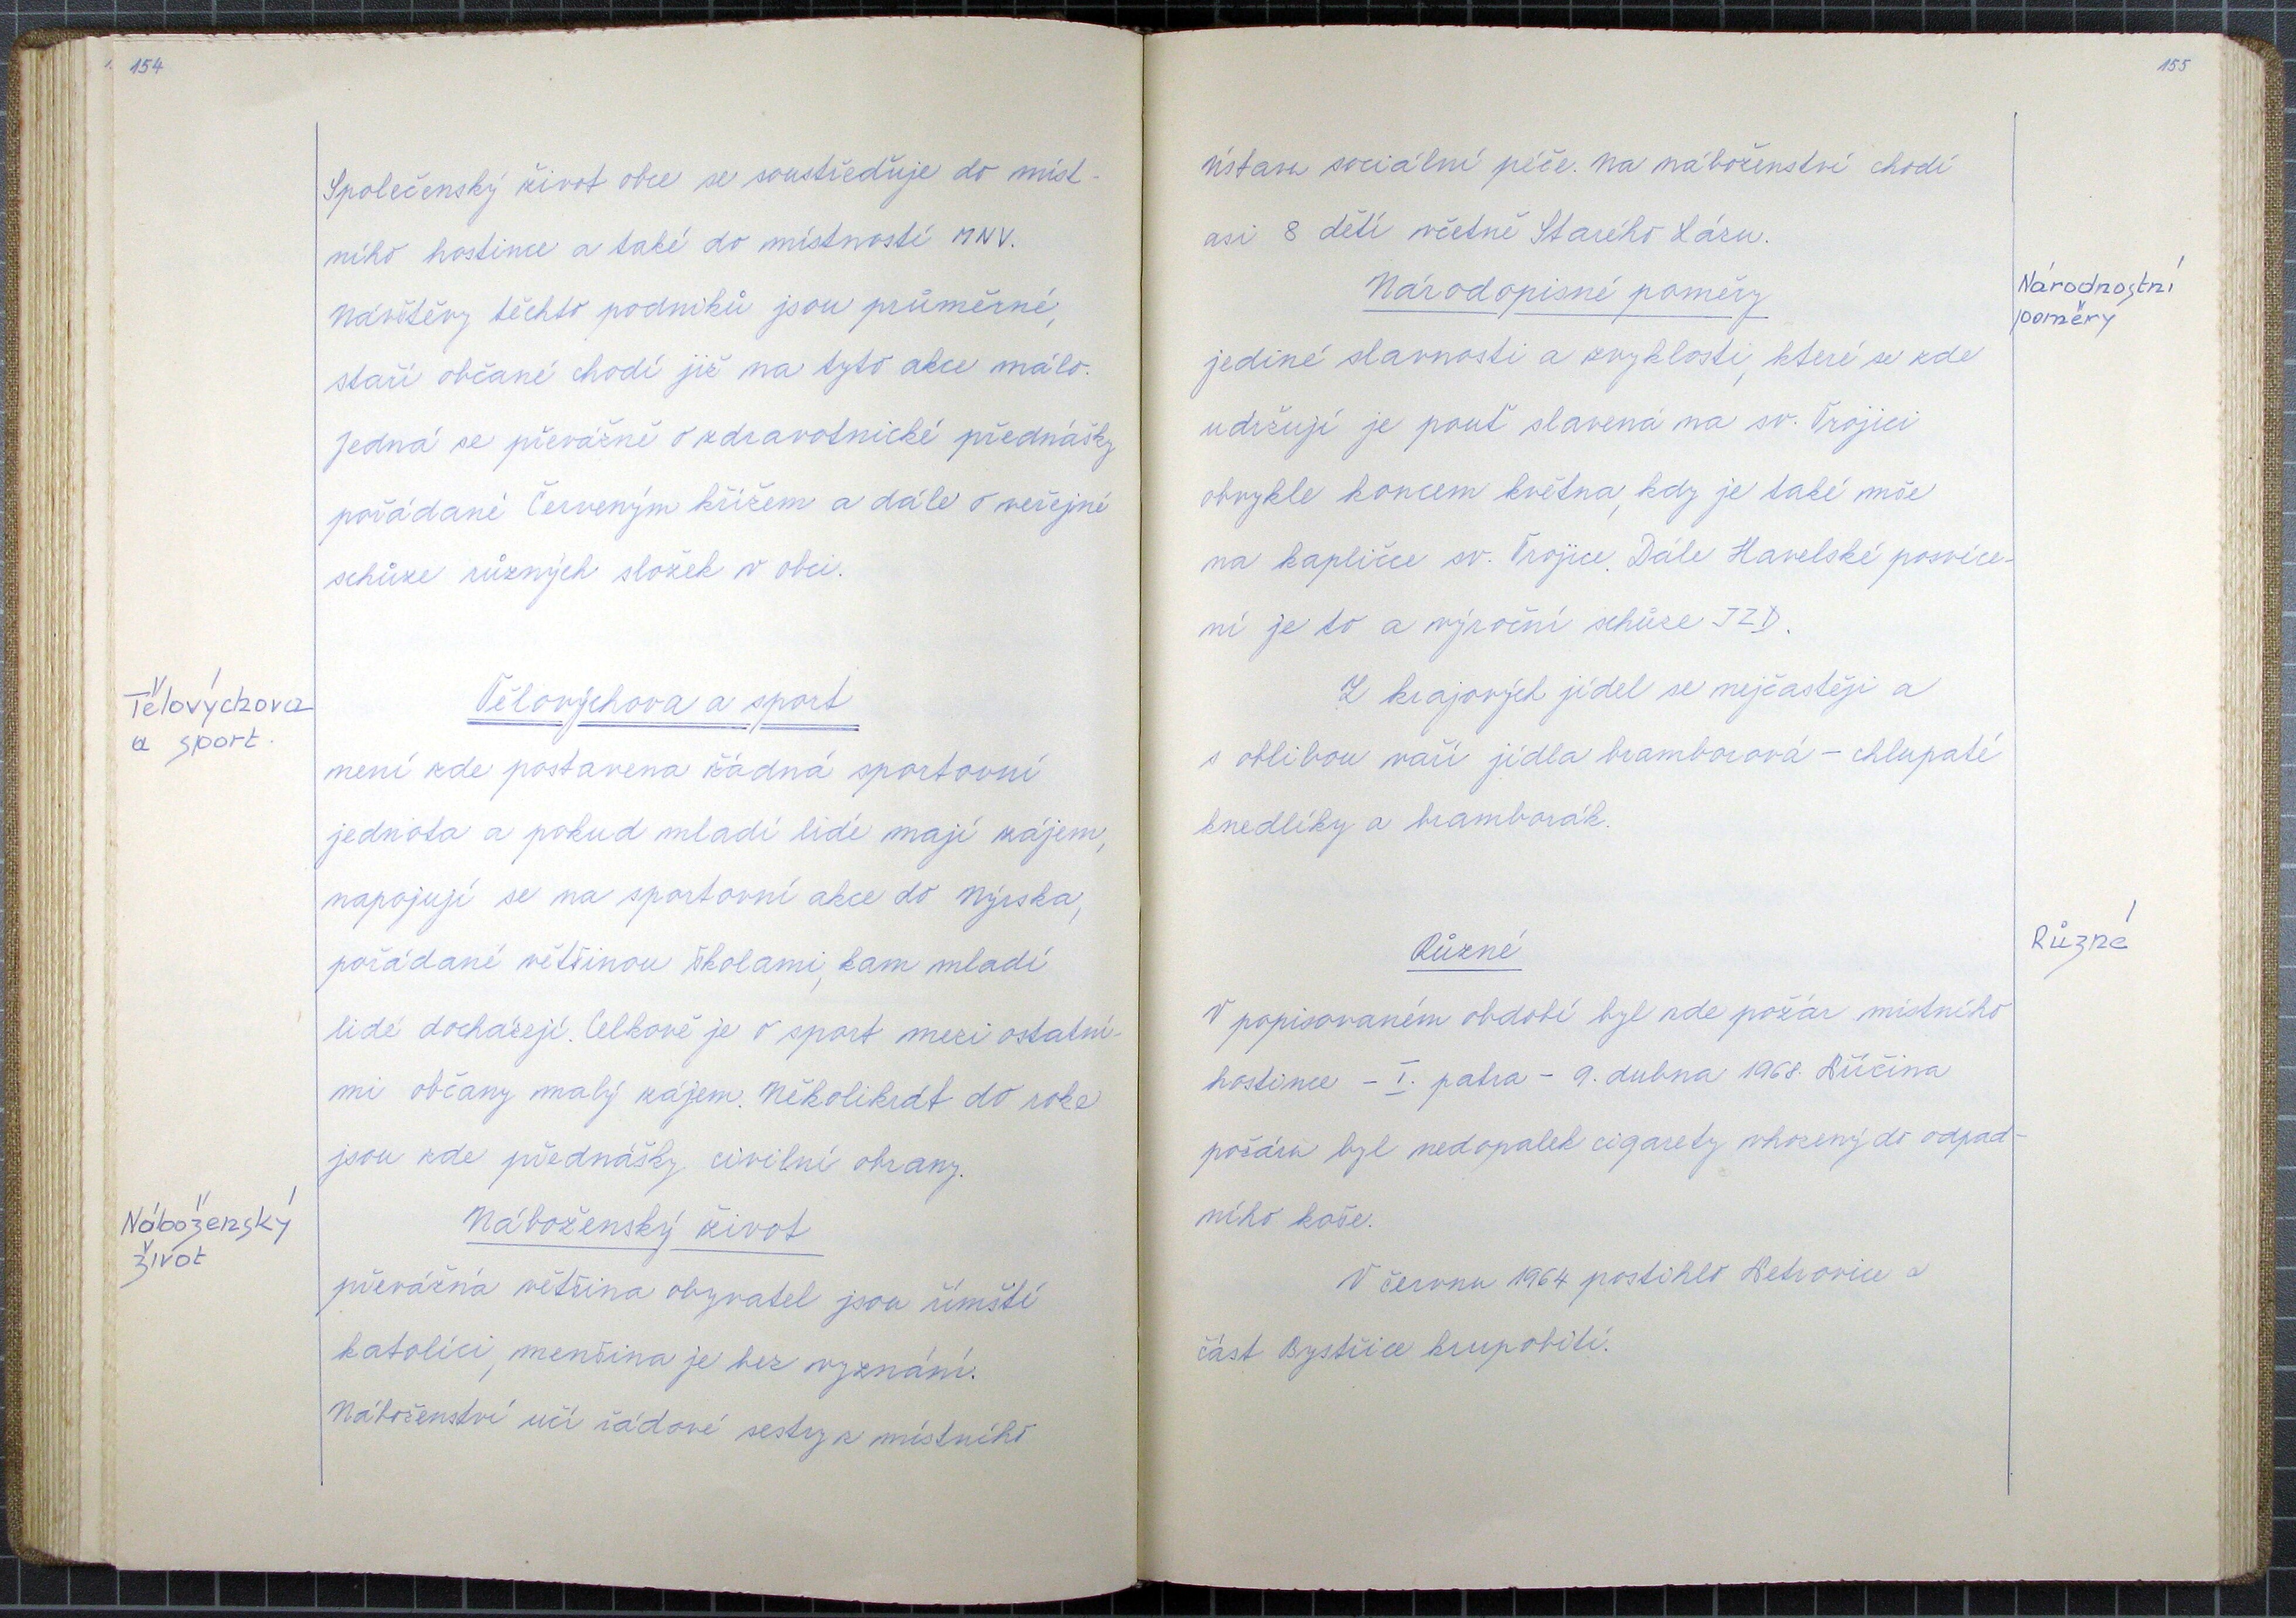 154
Společenský život obce se soustřeďuje do míst-
ního hostince a také do místností MNV.
Návštěvy těchto podniků jsou průměrné,
staří občané chodí již na tyto akce málo.
Jedná se převážně o zdravotnické přednášky
pořádané Červeným křížem a dále o veřejné
schůze různých složek v obci.
Tělovýchova
a sport.
Tělovýchova a sport
není zde postavena žádná sportovní
jednota a pokud mladí lidé mají zájem,
napojují se na sportovní akce do Nýrska,
pořádané většinou školami, kam mladí
lidé docházejí. Celkově je o sport mezi ostatní-
mi občany malý zájem. Několikrát do roka
jsou zde přednášky civilní obrany.
Náboženský
život
Náboženský život
převážná většina obyvatel jsou římští
katolíci, menšina je bez vyznání.
Náboženství učí řádové sestry z místního
155
ústavu sociální péče. Na náboženství chodí
asi 8 dětí včetně Starého Lázu.
Národnostní
poměry
Národopisné poměry
jediné slavnosti a zvyklosti, které se zde
udržují je pouť slavená na sv. Trojici
obvykle koncem května, kdy je také mše
na kapličce sv. Trojice. Dále Havelské posvíce-
ní je to a výroční schůze JZD.
Z krajových jídel se nejčastěji a
s oblibou vaří jídla bramborová - chlupaté
knedlíky a bramborák.
Různé
Různé
V popisovaném období byl zde požár místního
hostince - I. patra - 9. dubna 1968. Příčina
požáru byl nedopalek cigarety vhozený do odpad-
ního koše.
V červnu 1964 postihlo Petrovice a
část Bystřice krupobití.